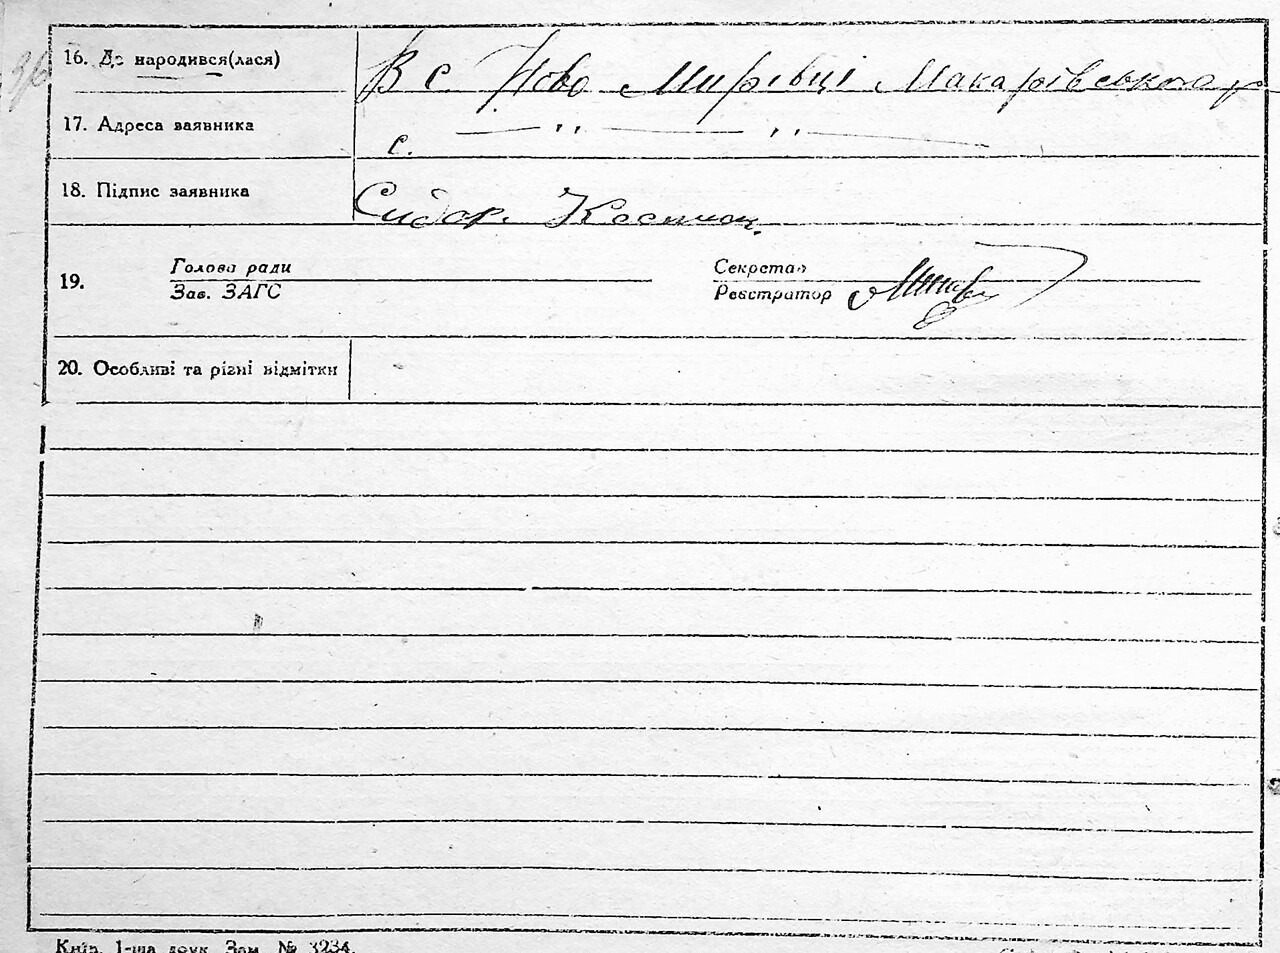 36
16. Де народився(лася) В с Ново Мирівці Макарівського р
17. Адреса заявника с. — ,, — ,, —
18. Підпис заявника Сидор.
19. Голова ради Секретар
Зав. ЗАГС Реєстратор
20. Особливі та різні відмітки
Київ, 1-ша друк. Зам. № 3234.